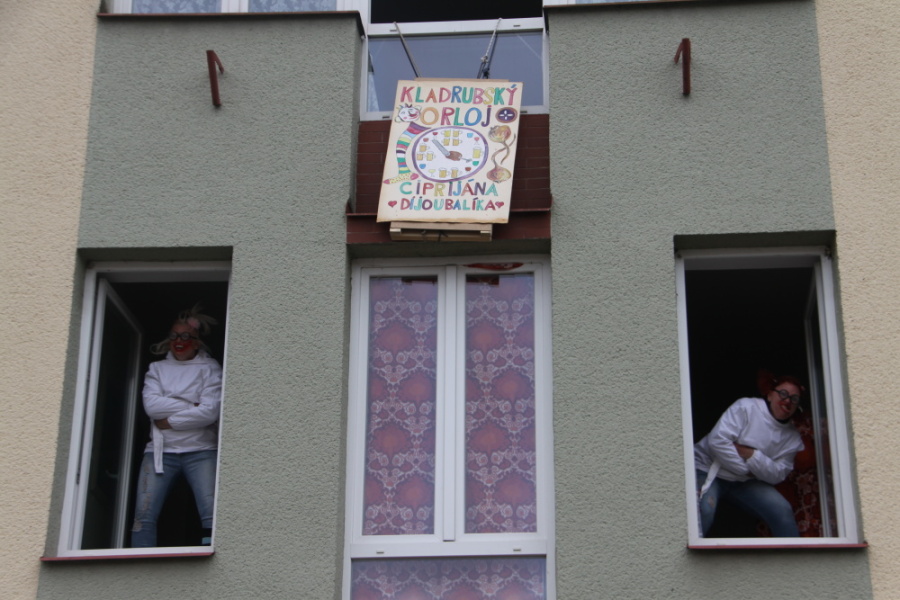 KLADRUBSKÝ
ORLOJ
CIPRIJÁNA
DÍJOUBALÍKA